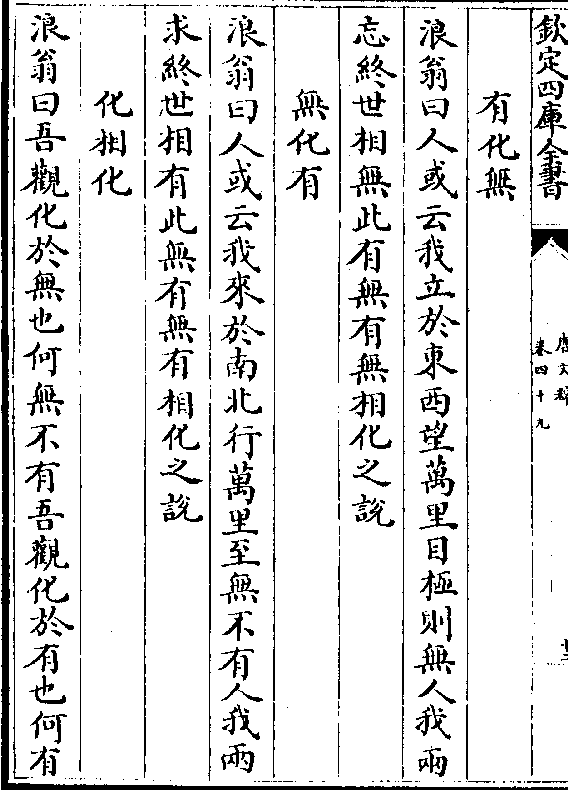 欽定四庫全書
卷四十九
有化無
浪翁曰人或云我立於東西望萬里目極則無人我兩
忘終世相無此有無有無相化之說
無化有
浪翁曰人或云我來於南北行萬里至無不有人我兩
求終世相有此無有無有相化之說
化相化
浪翁曰吾觀化於無也何無不有吾觀化於有也何有